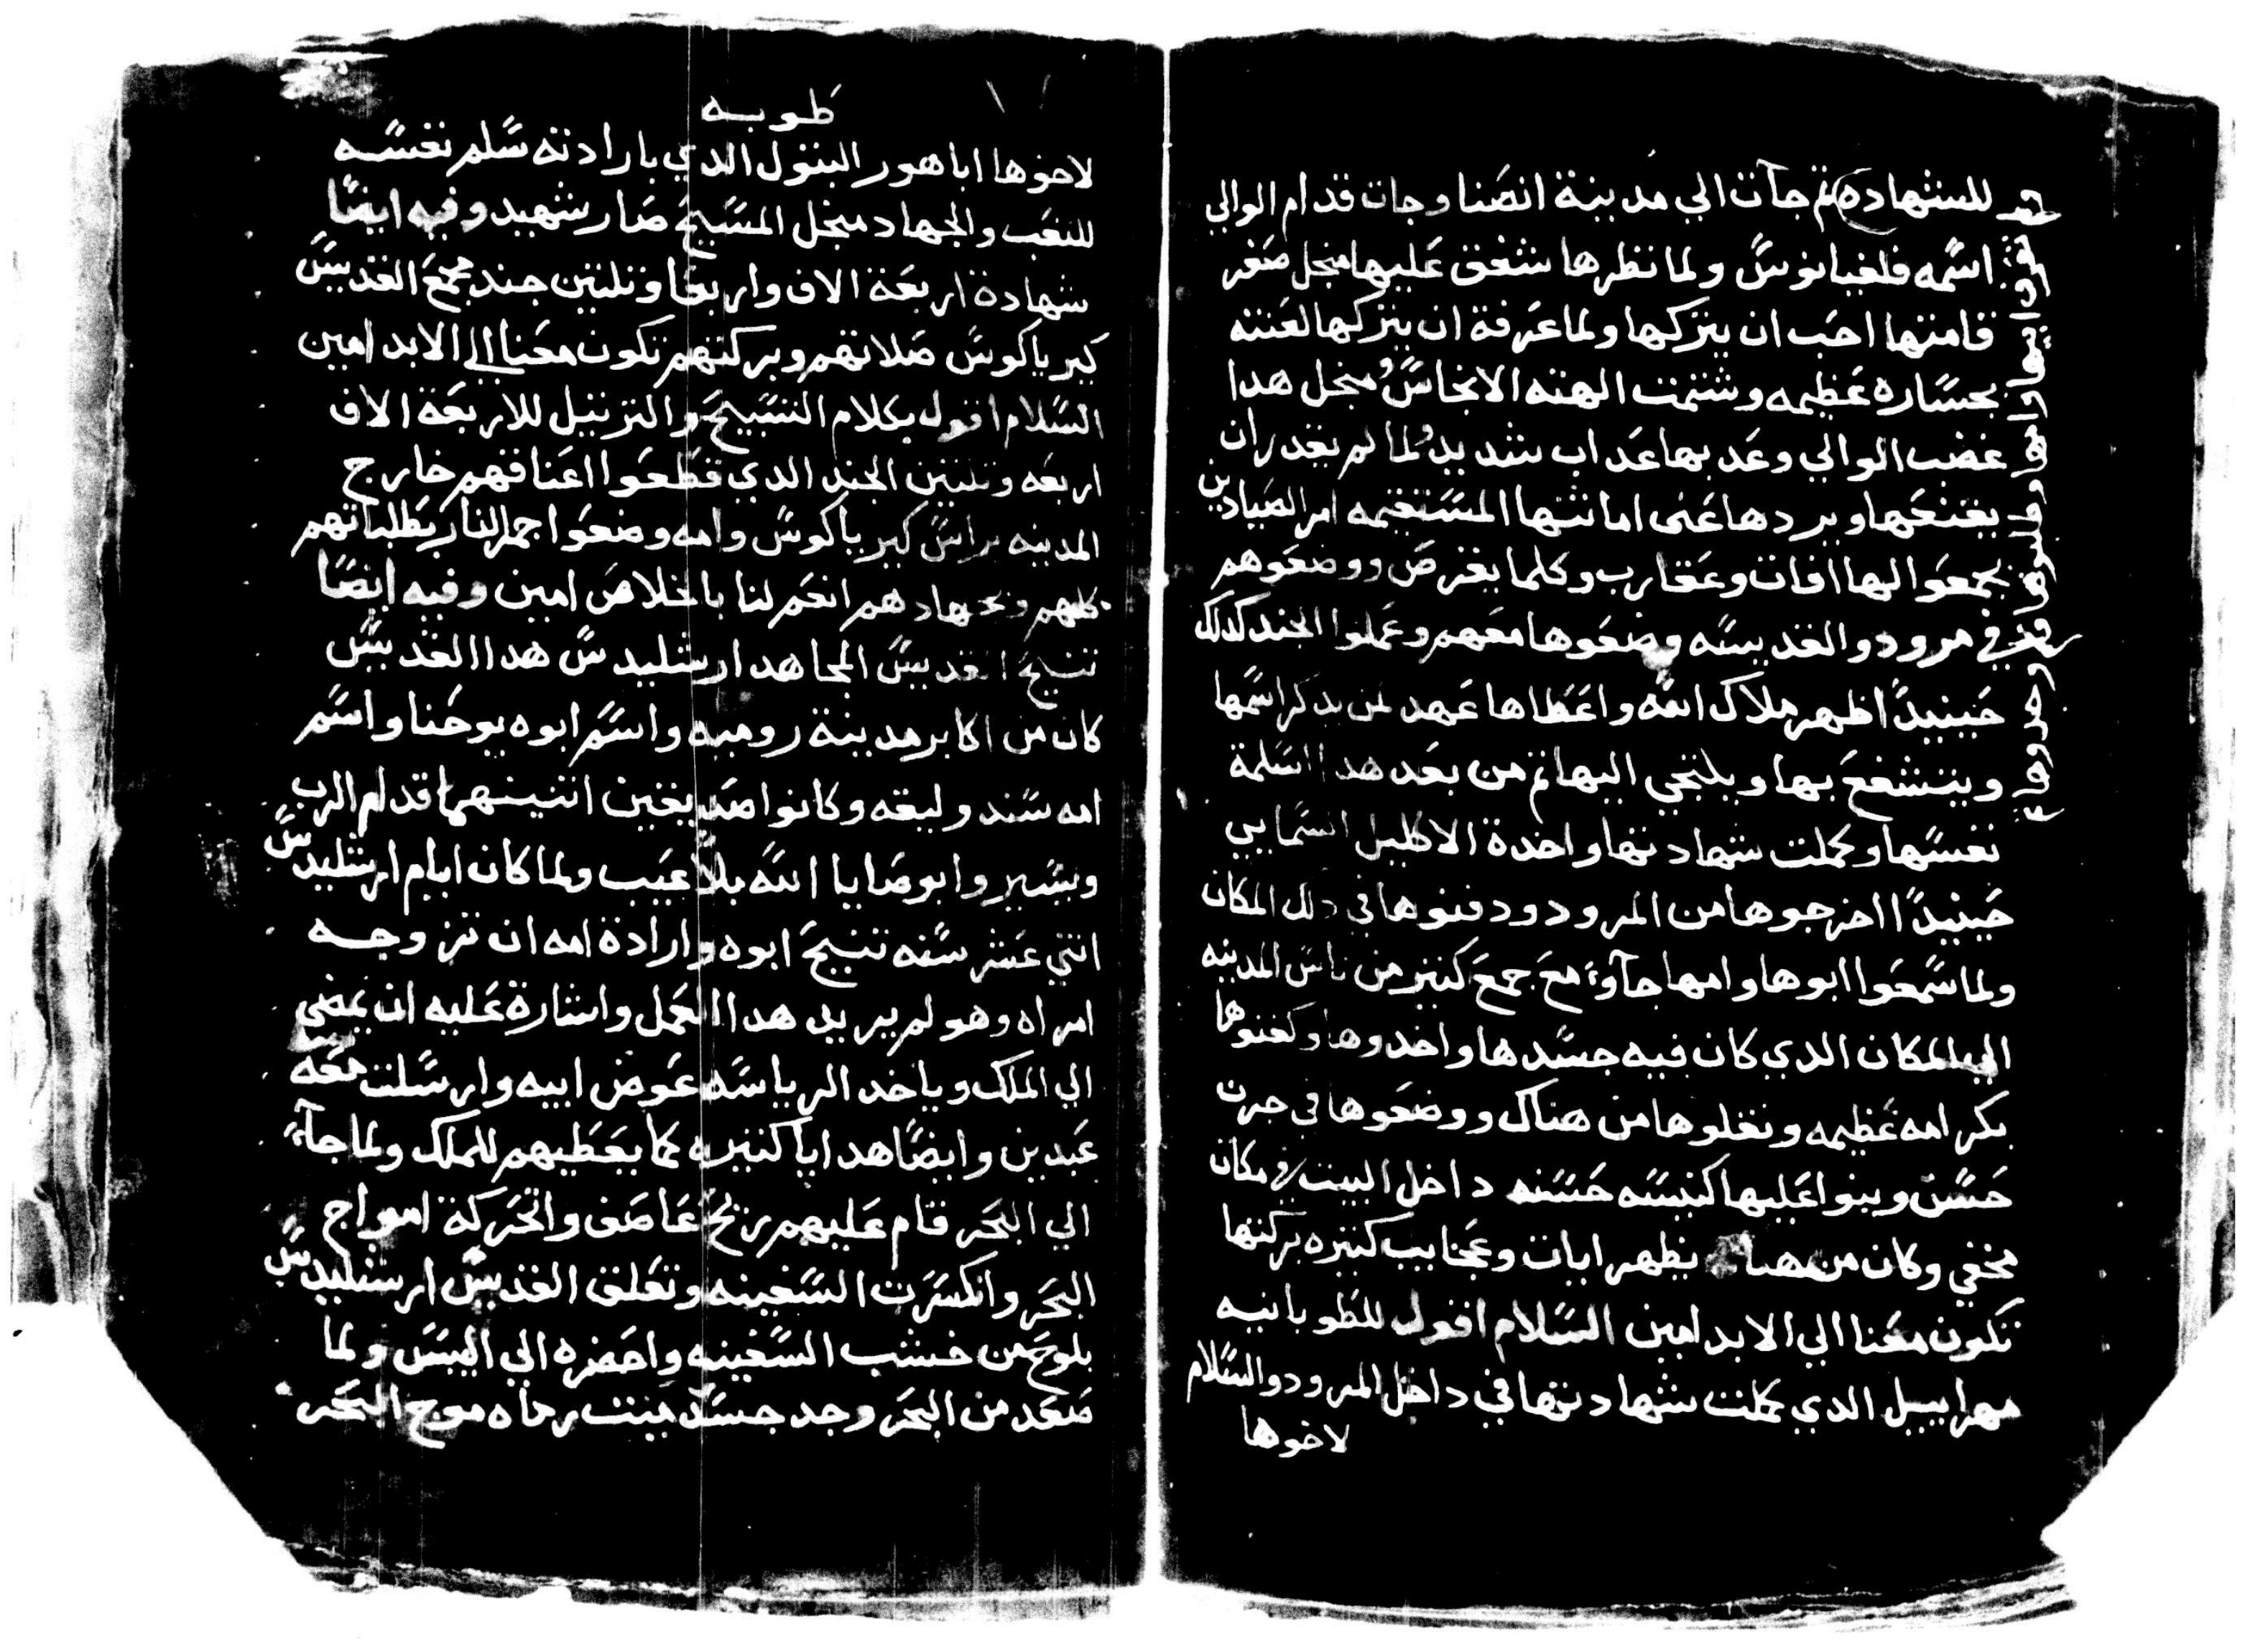 للشهاده ثم جآت الي مدينة انصنا وجات قدام الوالي
اسمه فلغيانوس ولما نظرها شفق عليها منجل صغر
قامتها احب ان يتركها ولما عرفة ان يتركها لعنته
بجساره عظيمه وشتمت الهته الانجاس ومنجل هدا
غضب الوالي وعدبها عداب شديد ولما لم يقدر ان
يقنعها ويردها عن امانتها المستقيمه امر الصيادين
يجمعوا لها افات وعقارب وكلما يقرص ووضعوهم
في مرود والقديسه وضعوها معهم وعملوا الجند كدلك
حينيدا ظهر ملاك الله واعطاها عهد لمن يدكر اسمها
ويتشفع بها ويلتجي اليها ثم من بعد هدا اسلمة
نفسها وكملت شهادتها واخدة الاكليل السمايي
حينيدا اخرجوها من المرود ودفنوها في دلك المكان
ولما سمعوا ابوها وامها جآوا مع جمع كتير من ناس المدينه
الي المكان الدي كان فيه جسدها واخدوها وكفنوها
بكرامه عظيمه ونقلوها من هناك ووضعوها في جرن
حسن وبنوا عليها كنيسه حسنه داخل البيت في مكان
مخفي وكان من هناك يظهر ايات وعجايب كتيره بركتها
تكون معنا الي الابد امين السلام اقول للطوبانيه
مهراييل الدي كملت شهادتها في داخل المرود والسلام
لاخوها
طوبه
لاخوها اباهور البتول الدي بارادته سلم نفسه
للتعب والجهاد منجل المسيح صار شهيد وفيه ايضا
شهادة اربعة الاف واربعا وتلتين جند مجمع القديس
كيرياكوس صلاتهم وبركتهم تكون معنا الي الابد امين
السلام اقول بكلام التسبيح والترتيل للاربعة الاف
اربعه وتلتين الجند الدي قطعوا اعناقهم خارج
المدينه براس كيرياكوس وامه وضعوا جمر النار بطلباتهم
كلهم وبجهادهم انعم لنا باخلاص امين وفيه ايضا
تنيح القديس المجاهد ارشليدس هدا القديس
كان من اكابر مدينة روميه واسم ابوه يوحنا واسم
امه سندوليقه وكانوا صديقين اتنينهما قدام الرب
ويسيروا بوصايا الله بلا عيب ولما كان ايام ارشليدس
اتني عشر سنه تنيح ابوه وارادة امه ان تزوجه
امراه وهو لم يريد هدا العمل واشارة عليه ان يمضي
الي الملك وياخد الرياسه عوض ابيه وارسلت معه
عبدين وايضا هدايا كتيره كما يعطيهم للملك ولما جآء
الي البحر قام عليهم ريح عاصف واتحركة امواج
البحر وانكسرت السفينه وتعلق القديس ارشليدس
بلوح من خشب السفينه واحضره الي اليبس ولما
صعد من البحر وجد جسد ميت رماه موج البحر